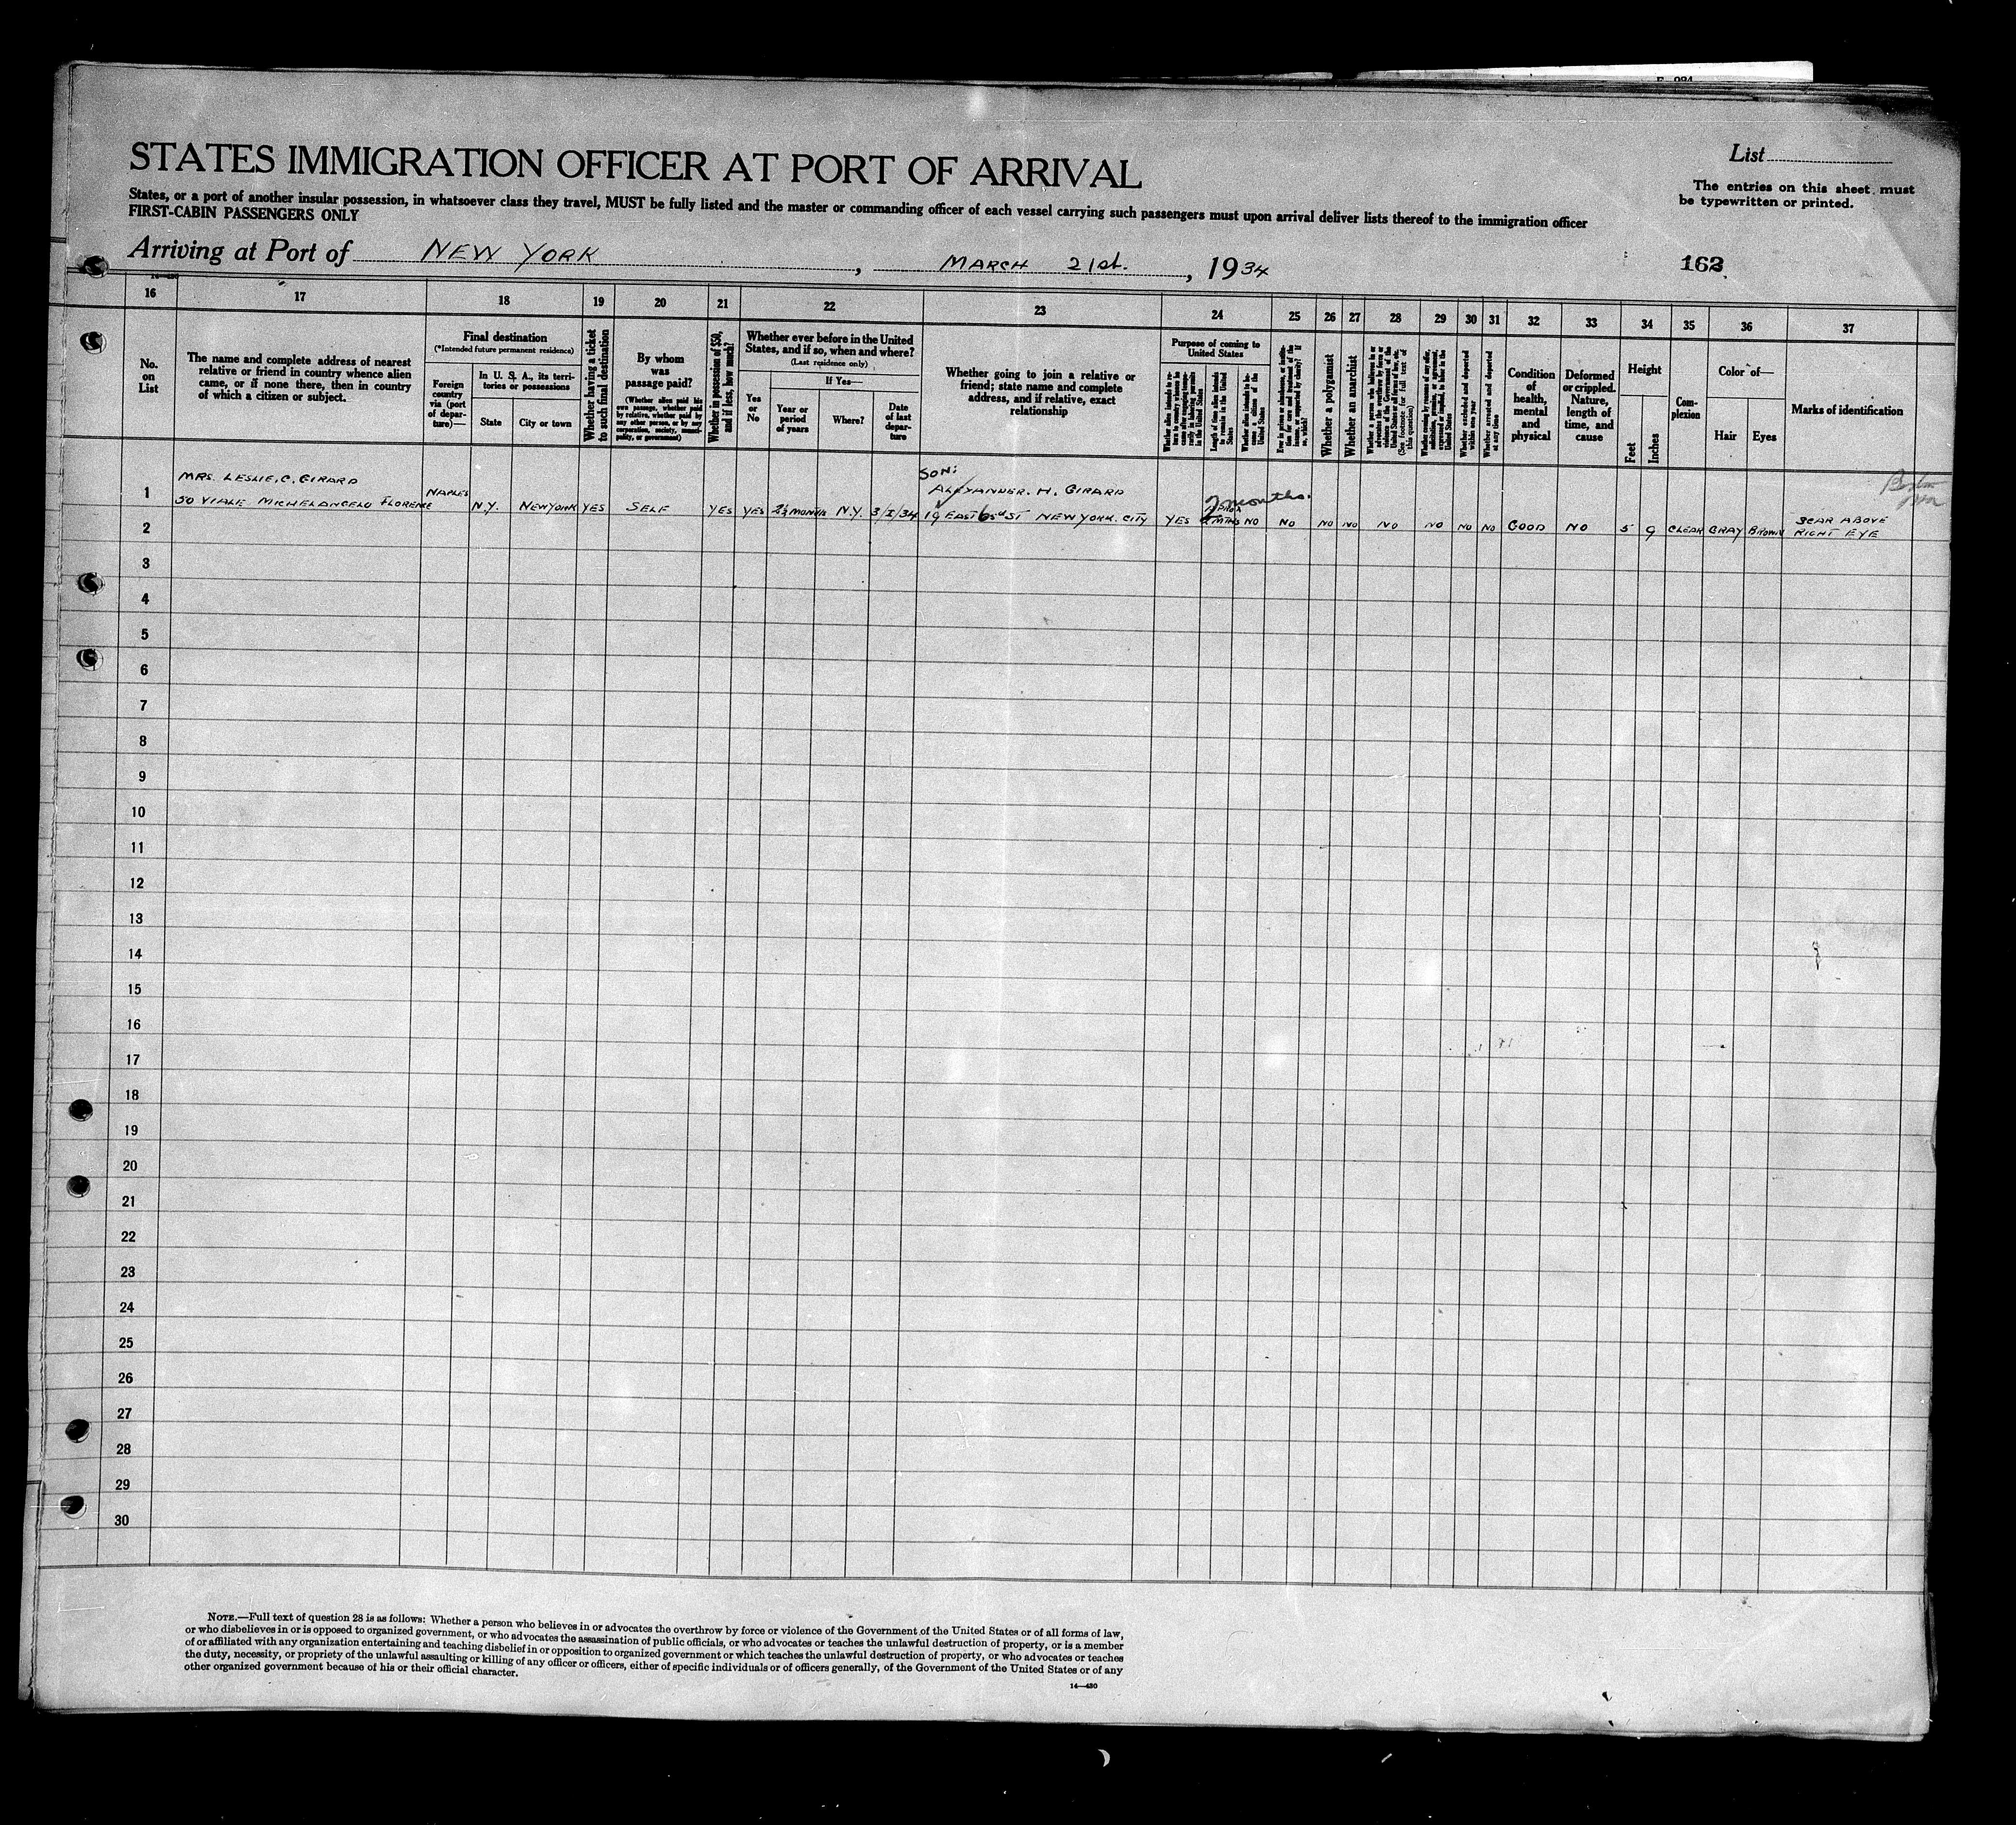 STATES IMMIGRATION OFFICER AT PORT OF ARRIVAL
List
The entries on this sheet must
be typewritten or printed.
States, or a port of another insular possession, in whatsoever class they travel, MUST be fully listed and the master or commanding officer of each vessel carrying such passengers must upon arrival deliver lists thereof to the immigration officer
FIRST-CABIN PASSENGERS ONLY
Arriving at Port of NEW YORK, MARCH 21st., 1934
162
16 17 18 19 20 21 22 23 24 25 26 27 28 29 30 31 32 33 34 35 36 37
No.
on
List
The name and complete address of nearest
relative or friend in country whence alien
came, or if none there, then in country
of which a citizen or subject.
Final destination
(*Intended future permanent residence)
Foreign
country
via (port
of depar-
ture)—
In U. S. A., its terri-
tories or possessions
State
City or town
Whether having a ticket
to such final destination
By whom
was
passage paid?
(Whether alien paid his
own passage, whether paid
by relative, whether paid by
any other person, or by any
corporation, society, munici-
pality, or government)
Whether in possession of $50,
and if less, how much?
Whether ever before in the United
States, and if so, when and where?
(Last residence only)
Yes
or
No
If Yes—
Year or
period
of years
Where?
Date
of last
depar-
ture
Whether going to join a relative or
friend; state name and complete
address, and if relative, exact
relationship
Purpose of coming to
United States
Length of time alien intends
to remain in the United
States
Whether alien intends to be-
come a citizen of the
United States
Whether a polygamist
Whether an anarchist
Whether excluded and deported
within one year
Whether arrested and deported
at any time
Condition
of
health,
mental
and
physical
Deformed
or crippled.
Nature,
length of
time, and
cause
Height
Feet
Inches
Com-
plexion
Color of—
Hair
Eyes
Marks of identification
1
MRS. LESLIE, C, GIRARD
50 VIALE MICHELANGELO FLORENCE
NAPLES
N.Y.
NEW YORK
YES
SELF
YES
YES
2½ MONTHS
N.Y.
3/1/34
SON:
ALEXANDER. H. GIRARD
19 EAST 63rd ST NEW YORK. CITY
YES
2 months.
NO
NO
NO
NO
NO
NO
NO
NO
GOOD
NO
5
9
CLEAR
GRAY
BROWN
SCAR ABOVE
RIGHT EYE
2
3
4
5
6
7
8
9
10
11
12
13
14
15
16
17
18
19
20
21
22
23
24
25
26
27
28
29
30
NOTE.—Full text of question 28 is as follows: Whether a person who believes in or advocates the overthrow by force or violence of the Government of the United States or of all forms of law,
or who disbelieves in or is opposed to organized government, or who advocates the assassination of public officials, or who advocates or teaches the unlawful destruction of property, or is a member
of or affiliated with any organization entertaining and teaching disbelief in or opposition to organized government or which teaches the unlawful destruction of property, or who advocates or teaches
the duty, necessity, or propriety of the unlawful assaulting or killing of any officer or officers, either of specific individuals or of officers generally, of the Government of the United States or of any
other organized government because of his or their official character.
14—430